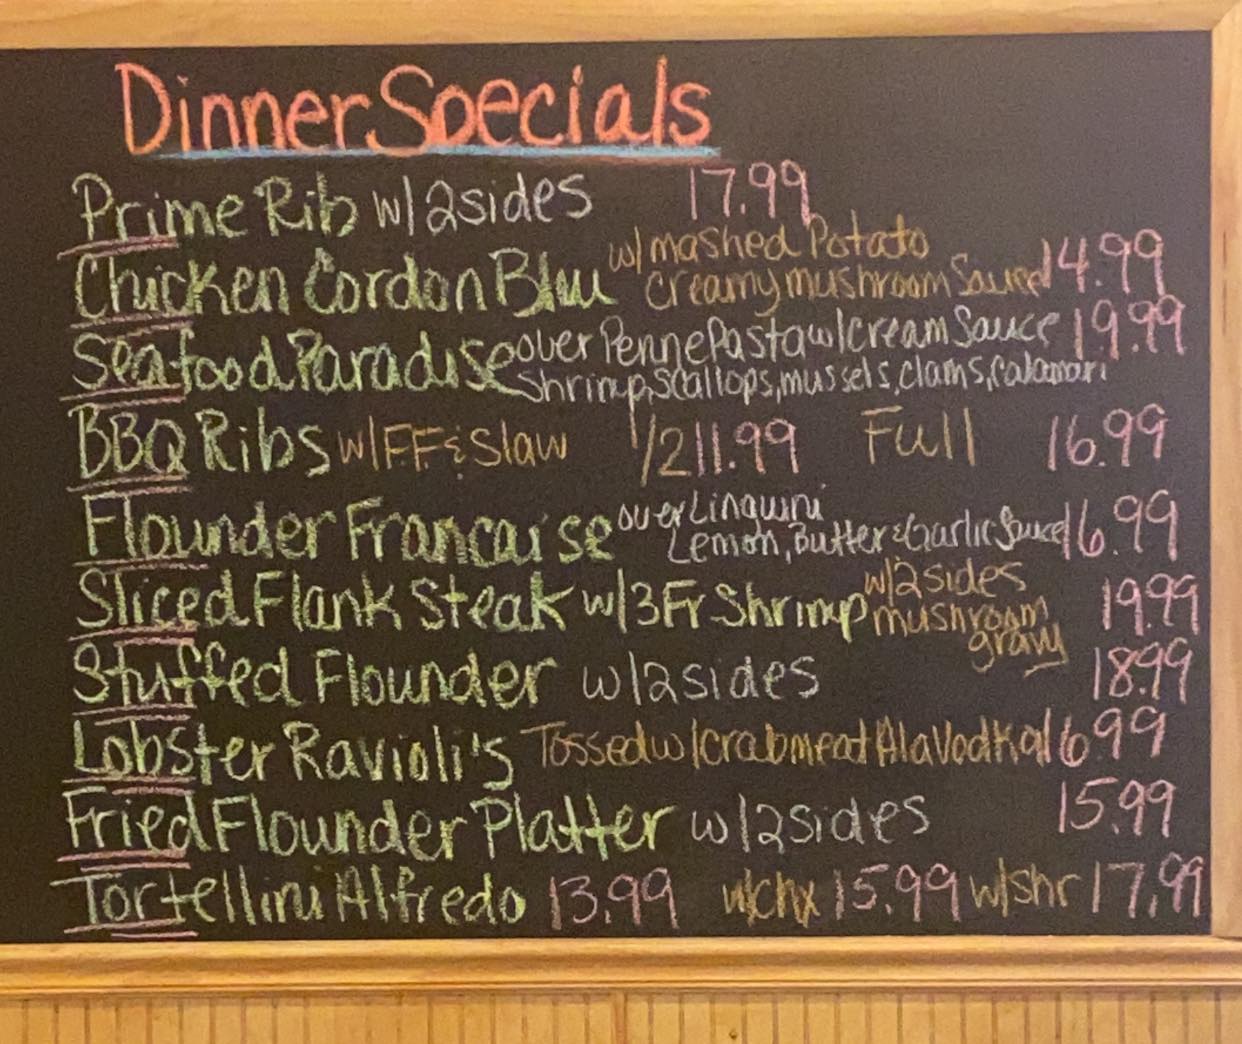 Dinner Specials
Prime Rib w/2sides 17.99
Chicken Cordon Blu w/mashed Potato
creamy mushroom Sauce 14.99
Seafood Paradise over Penne Pasta w/cream Sauce 19.99
Shrimp, Scallops, mussels, clams, calamari
BBQ Ribs w/FF & Slaw 1/2 11.99 Full 16.99
Flounder Francaise over Linguini
Lemon, Butter & Garlic Sauce 16.99
Sliced Flank Steak w/3Fr Shrimp w/2sides
mushroom
gravy 19.99
Stuffed Flounder w/2sides 18.99
Lobster Ravioli's Tossed w/crabmeat Ala Vodka 16.99
Fried Flounder Platter w/2sides 15.99
Tortellini Alfredo 13.99 w/chx 15.99 w/shr 17.99